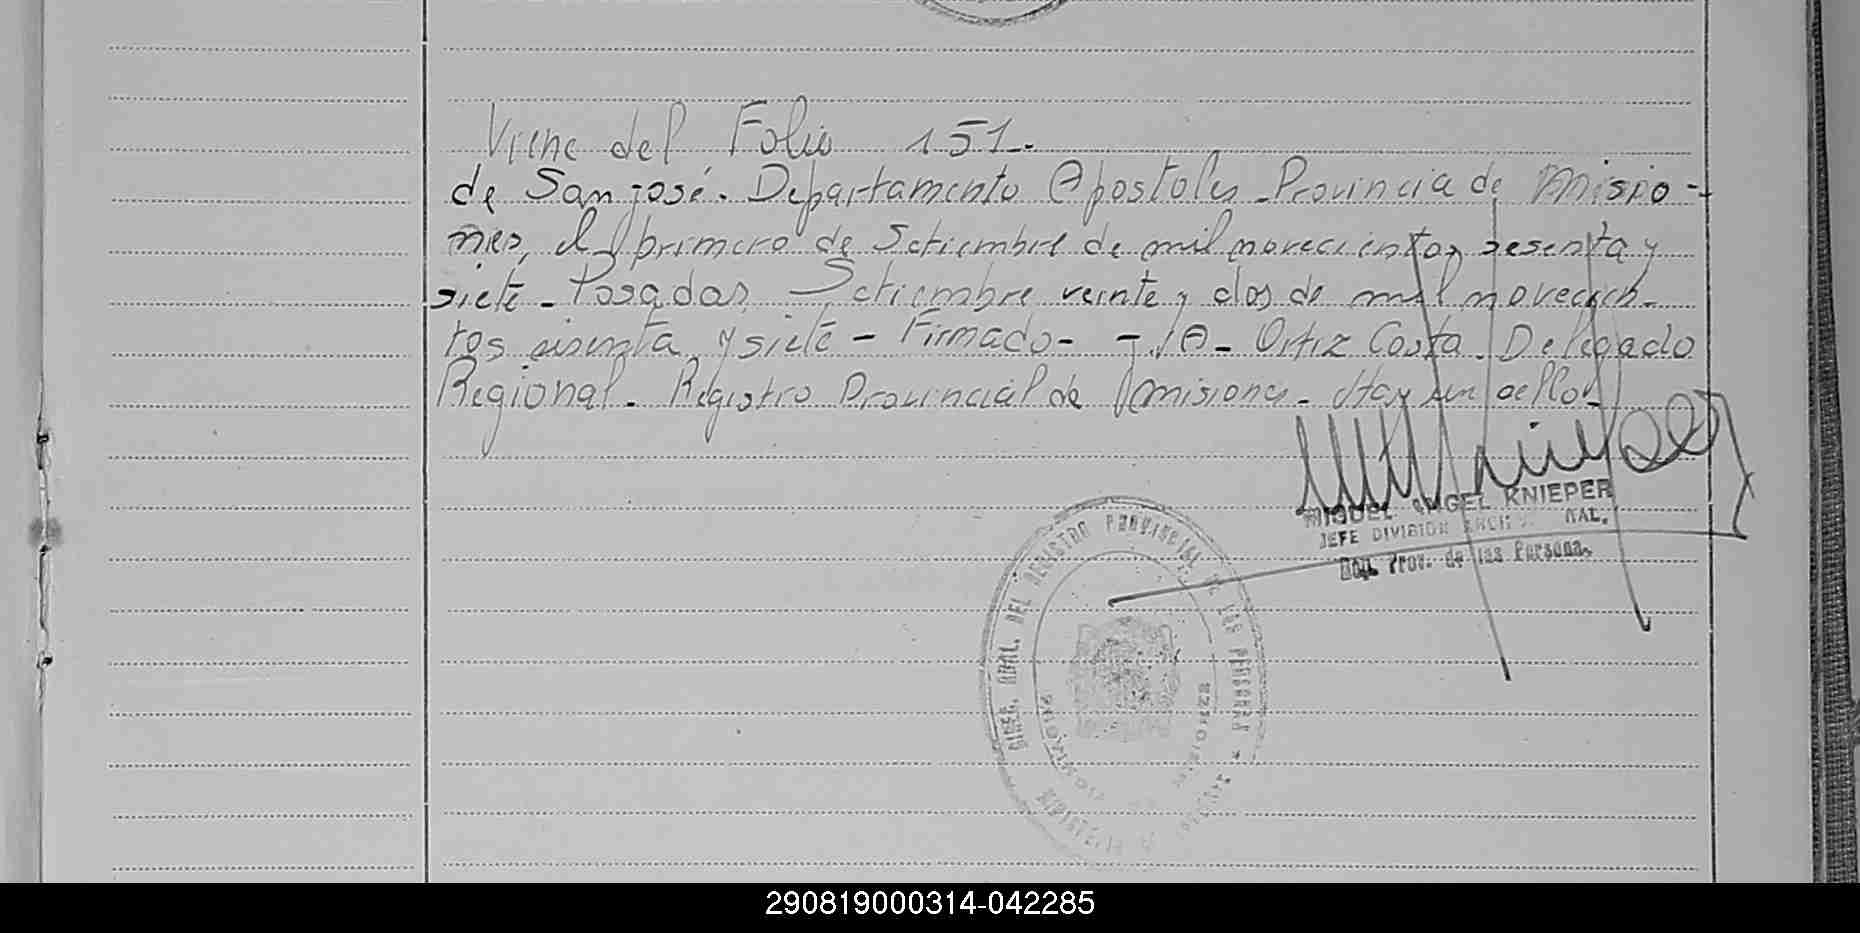 Viene del Folio 151.
de San José. Departamento Apostoles. Provincia de Misio-
nes, el primero de Setiembre de mil novecientos sesenta y
siete - Posadas, Setiembre veinte y dos de mil novecien-
tos sesenta y siete - Firmado - J.A- Ortiz Costa. Delegado
Regional. Registro Provincial de Misiones - Hay un sello
MIGUEL ANGEL KNIEPER
JEFE DIVISION
Prov. de las Persona.
DIREC. GRAL. DEL REGISTRO PROVINCIAL DE LAS PERSONAS
MINISTERIO
290819000314-042285